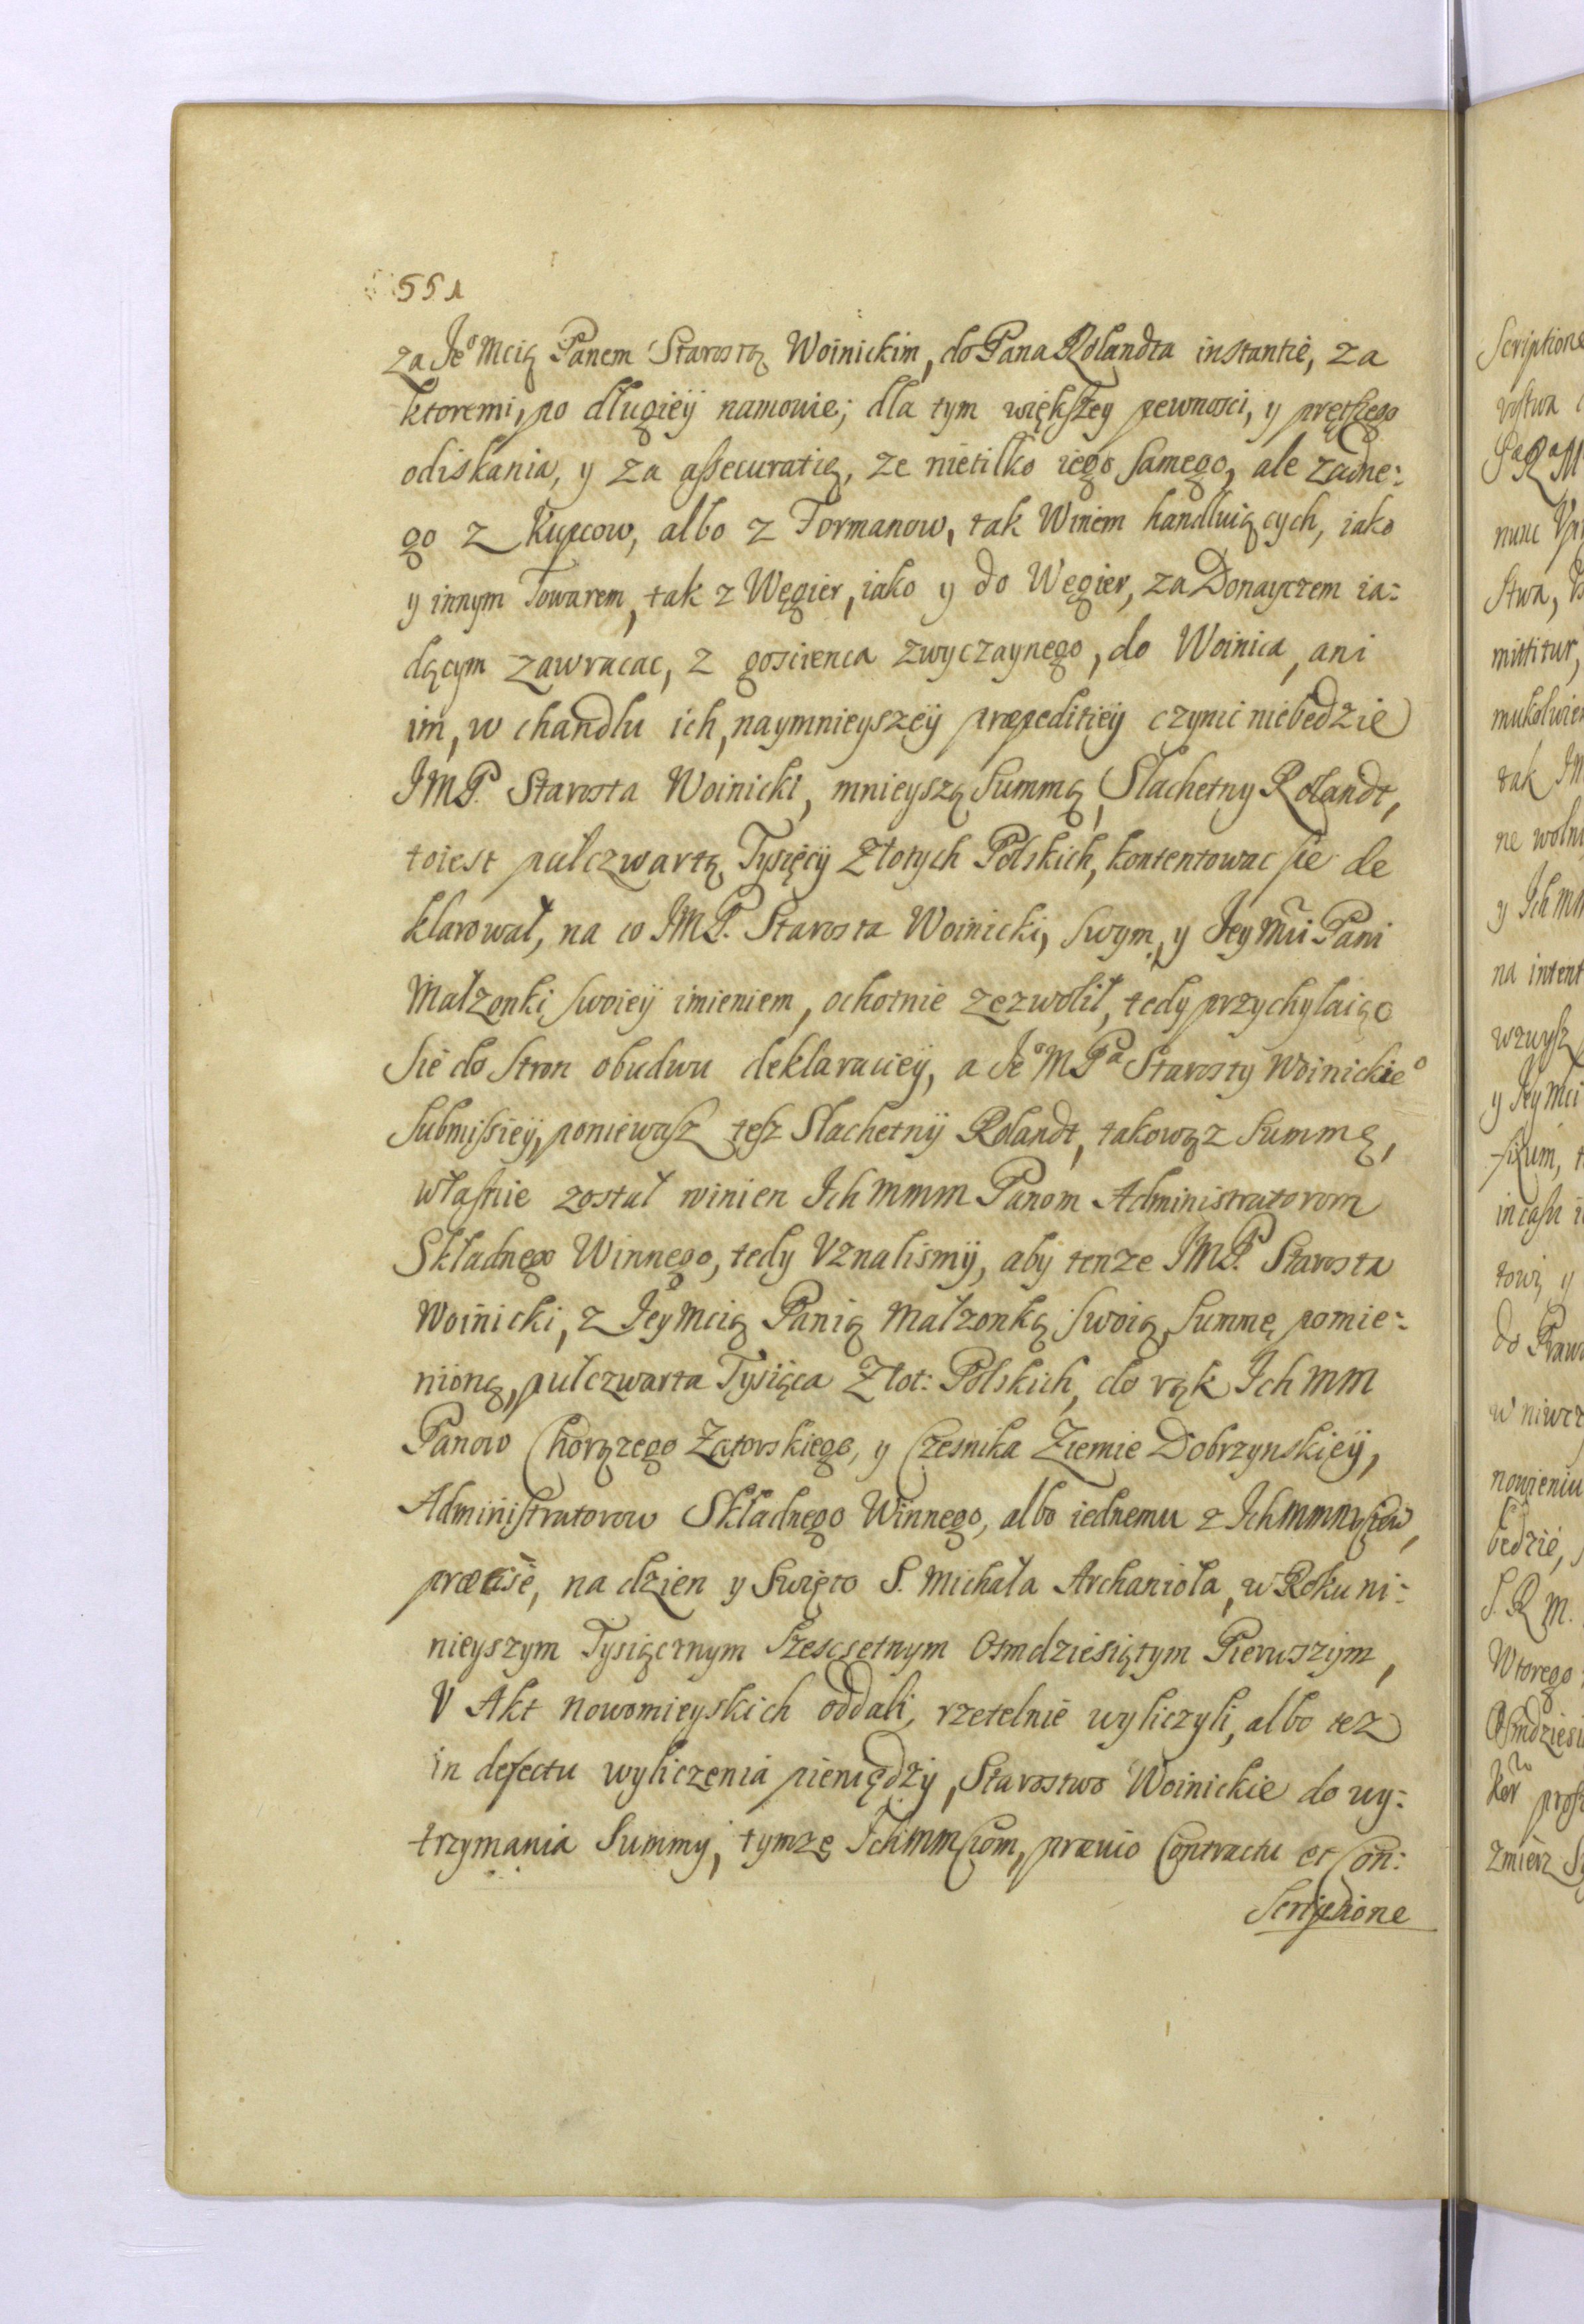 551
za Je⁰ Mcią Panem Starostą Woinickim, do Pana Rolandta instantie, za
ktoremi, po długieÿ namowie; dla tym większey pewnosci, y prętkiego
odiskania, y za assecuratią, ze nietilko iego samego, ale zadne:
go z Kupcow, albo z Formanow, tak Winem handluiących, iako
y innym Towarem, tak z Węgier, iako y do Węgier, za Donaycem ia:
dącym zawracac, z goscienca zwyczaynego, do Woinica, ani
im, w chandlu ich, naymnieyszeÿ præpeditieÿ czynic niebedzie
JMP. Starosta Woinicki, mnieyszą Summą, Slachetny Rolandt,
toiest pułczwartą Tysięcÿ Złotych Polskich, kontentowac sie de
klarował, na co JMP. Starosta Woinicki, swym, y Jey Mci Pani
Małzonki swoieÿ imieniem, ochotnie zezwolił, tedy przychylaiąc
Sie do Stron obudwu deklaracieÿ, a Je⁰ MPᵃ Starosty Woinickie⁰
Submissieÿ, poniewasz tesz Slachetnÿ Rolandt, takowąz Summę,
własnie został winien Ich mmm Panom Administratorom
Składnego Winnego, tedy Vznalismÿ, abÿ tenze JMP. Starosta
Woinicki, z Jey Mcią Panią Małzonką swoią, Summę pomie:
nioną, pułczwarta Tysiąca Złot: Polskich, do rąk Ich mm
Panow Chorązego Zatorskiego, y Czesnika Ziemie Dobrzynskieÿ,
Administratorow Składnego Winnego, albo iednemu z Ich mm
præcise, na dzien y Swięto S. Michała Archanioła, w Roku ni:
nieyszym Tysiącnym Szescsetnym Osmdziesiątym Pierwszÿm,
V Akt Nowomieyskich oddali, rzetelnie wyliczyli, albo tez
in defectu wyliczenia pieniędzÿ, Starostwo Woinickie do wy:
trzymania Summÿ, tymze Ichmmciom, prævio Contractu et Con:
Scriptione